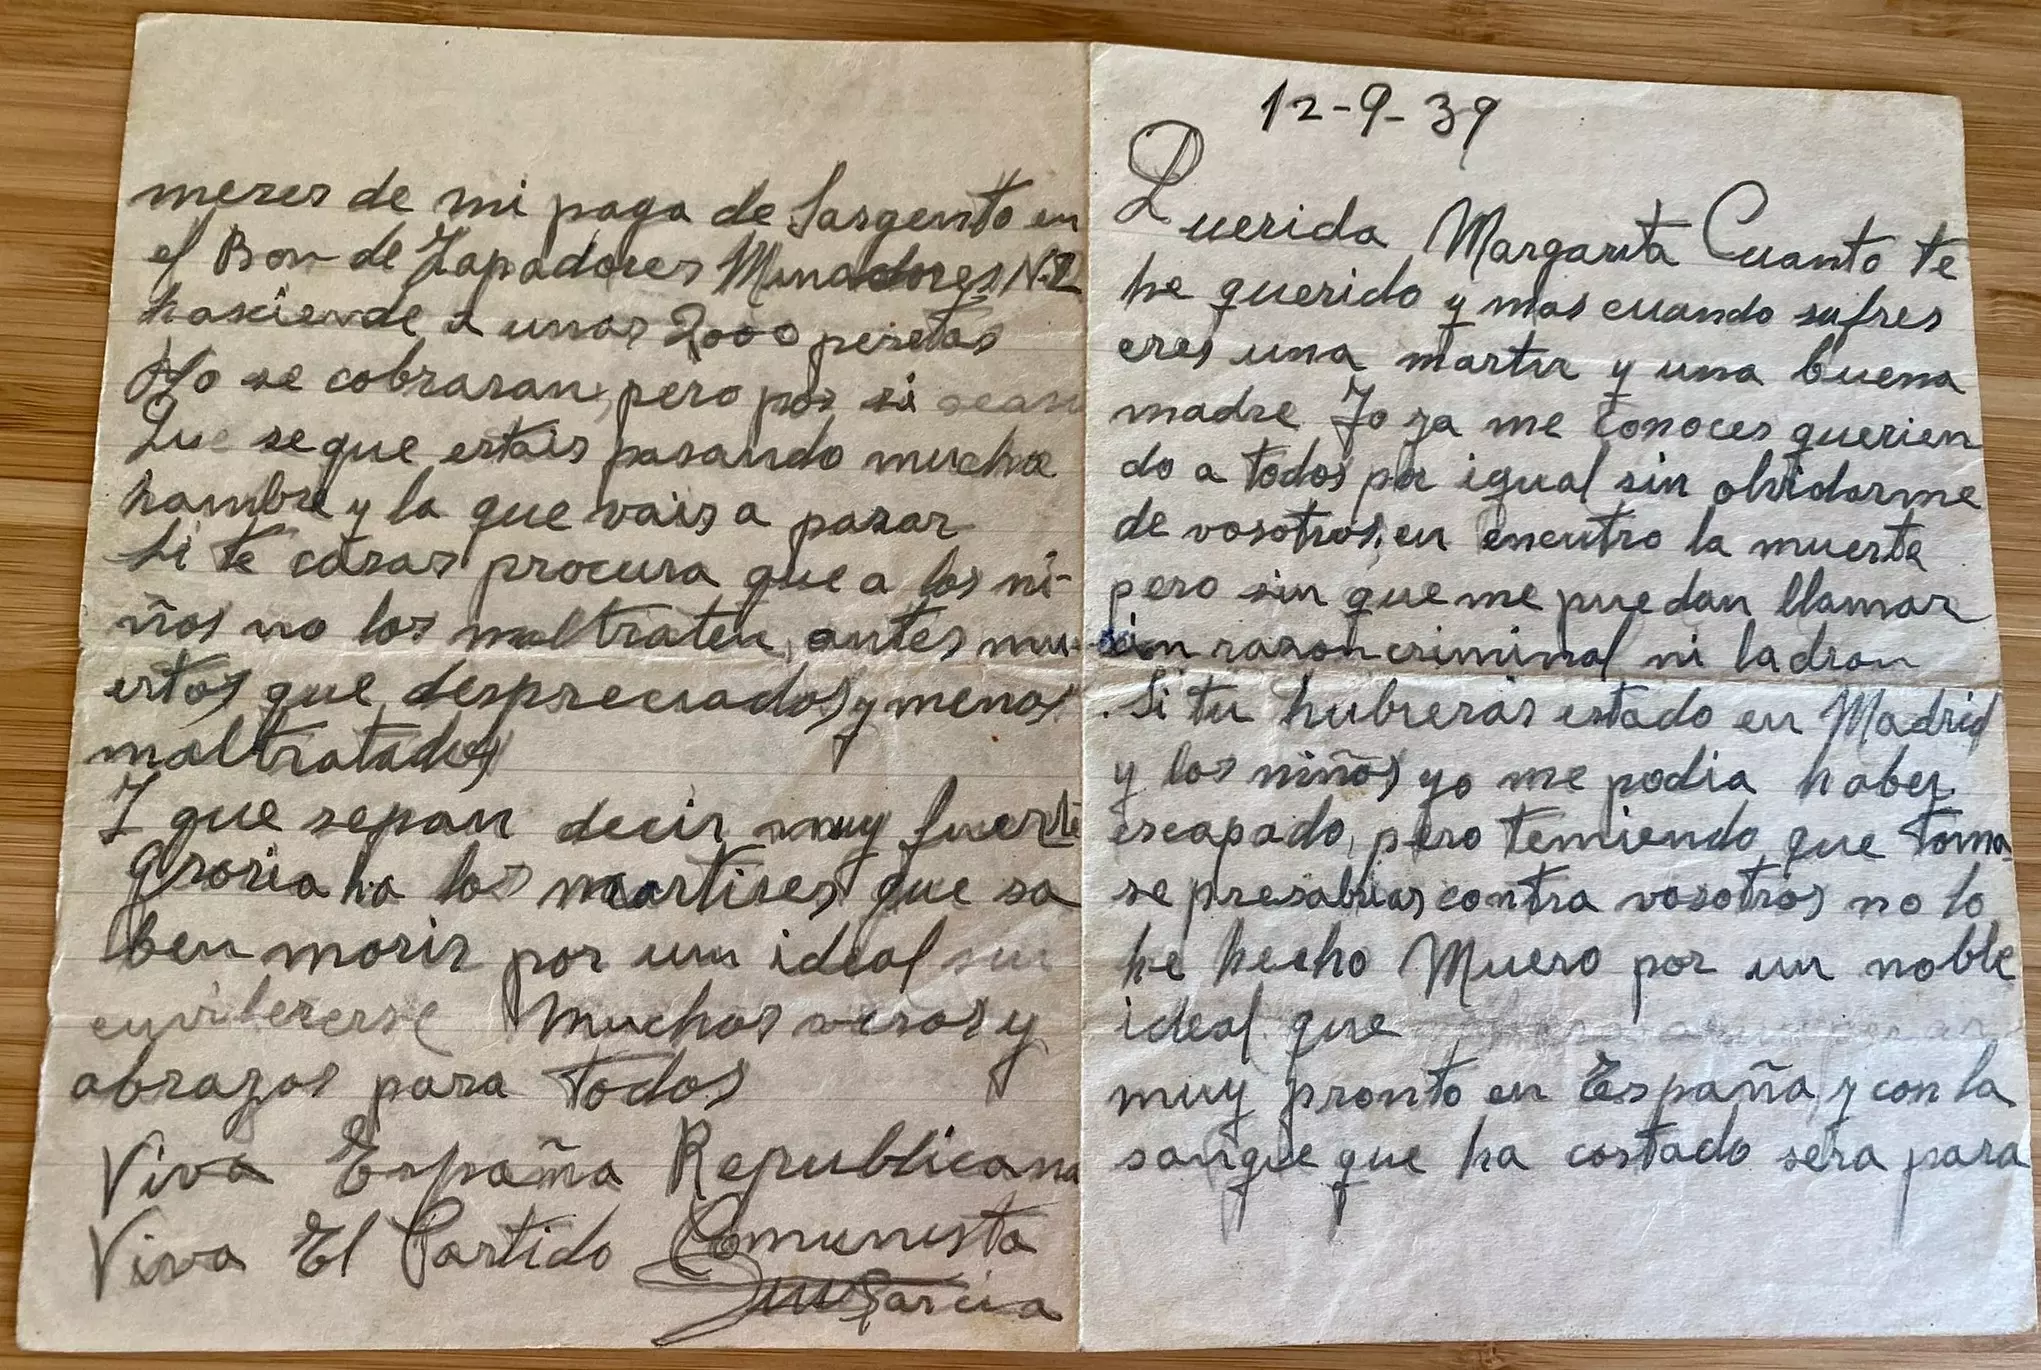 12-9-39
Querida Margarita Cuanto te
he querido y mas cuando sufres
eres una martir y una buena
madre Yo ya me conoces querien
do a todos por igual sin olvidarme
de vosotros, en encutro la muerte
pero sin que me puedan llamar
sin razon criminal ni ladron
Si tu hubieras estado en Madrid
y los niños yo me podia haber
escapado, pero temiendo que toma-
se presabias contra vosotros no lo
he hecho Muero por un noble
ideal que
muy pronto en España, y con la
sangre que ha costado sera para
meses de mi paga de Sargento en
el Bon de Zapadores Minadores N.2
hasciende a unas 2000 pesetas
No se cobraran, pero por si
Que se que estais pasando mucha
hambre y la que vais a pasar
Si te casas procura que a los ni-
ños no los maltraten, antes mu-
ertos que despreciados y menos
maltratados
Y que sepan decir muy fuerte
Groria ha los martires que sa
ben morir por un ideal sin
envilecerse Muchos vesos y
abrazos para todos
Viva España Republicana
Viva El Partido Comunista
Garcia